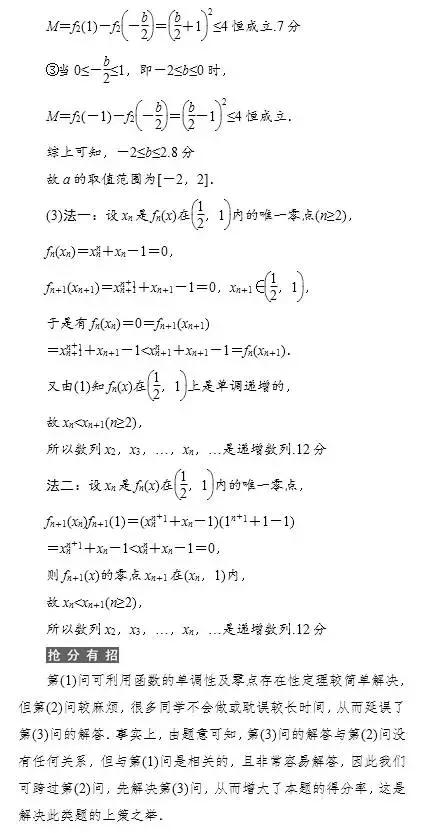 M=f₂(1)-f₂(-b/2)=(b/2+1)²≤4恒成立.7分
③当0≤-b/2≤1,即-2≤b≤0时,
M=f₂(-1)-f₂(-b/2)=(b/2-1)²≤4恒成立.
综上可知,-2≤b≤2.8分
故a的取值范围为[-2,2].
(3)法一:设xₙ是fₙ(x)在(1/2,1)内的唯一零点(n≥2),
fₙ(xₙ)=xₙⁿ+xₙ-1=0,
fₙ₊₁(xₙ₊₁)=xₙ₊₁ⁿ⁺¹+xₙ₊₁-1=0,xₙ₊₁∈(1/2,1),
于是有fₙ(xₙ)=0=fₙ₊₁(xₙ₊₁)
=xₙ₊₁ⁿ⁺¹+xₙ₊₁-1<xₙ₊₁ⁿ+xₙ₊₁-1=fₙ(xₙ₊₁).
又由(1)知fₙ(x)在(1/2,1)上是单调递增的,
故xₙ<xₙ₊₁(n≥2),
所以数列x₂,x₃,…,xₙ,…是递增数列.12分
法二:设xₙ是fₙ(x)在(1/2,1)内的唯一零点,
fₙ₊₁(xₙ)fₙ₊₁(1)=(xₙⁿ⁺¹+xₙ-1)(1ⁿ⁺¹+1-1)
=xₙⁿ⁺¹+xₙ-1<xₙⁿ+xₙ-1=0,
则fₙ₊₁(x)的零点xₙ₊₁在(xₙ,1)内,
故xₙ<xₙ₊₁(n≥2),
所以数列x₂,x₃,…,xₙ,…是递增数列.12分
抢分有招
第(1)问可利用函数的单调性及零点存在性定理较简单解决,
但第(2)问较麻烦,很多同学不会做或耽误较长时间,从而延误了
第(3)问的解答.事实上,由题意可知,第(3)问的解答与第(2)问没
有任何关系,但与第(1)问是相关的,且非常容易解答,因此我们
可跨过第(2)问,先解决第(3)问,从而增大了本题的得分率,这是
解决此类题的上策之举.